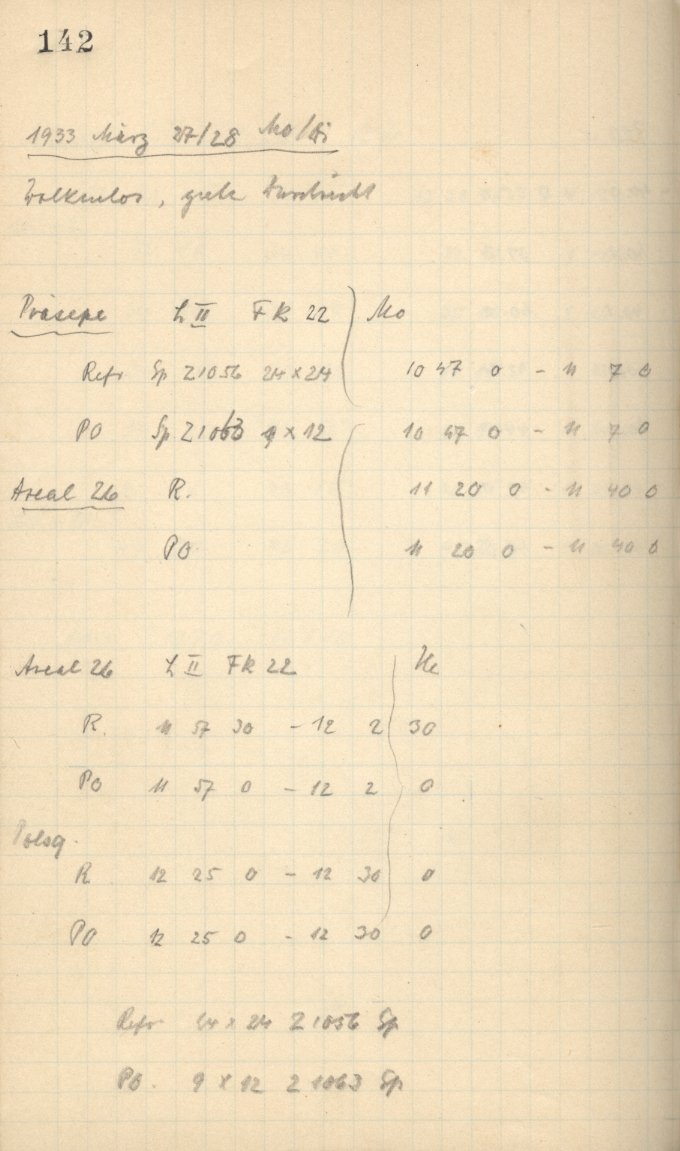 142
1933 März 27/28 Mo/Di
Wolkenlos, gute Durchsicht
Präsepe L II FK 22 Mo
Refr Sp Z1056 24 x 24 10 47 0 - 11 7 0
PO Sp Z1063 9 x 12 10 47 0 - 11 7 0
Areal 26 R. 11 20 0 - 11 40 0
PO 11 20 0 - 11 40 0
Areal 26 L II FK 22 He
R. 11 57 30 - 12 2 30
PO 11 57 0 - 12 2 0
Polsq.
R 12 25 0 - 12 30 0
PO 12 25 0 - 12 30 0
Refr 24 x 24 Z 1056 Sp
PO. 9 x 12 Z 1063 Sp